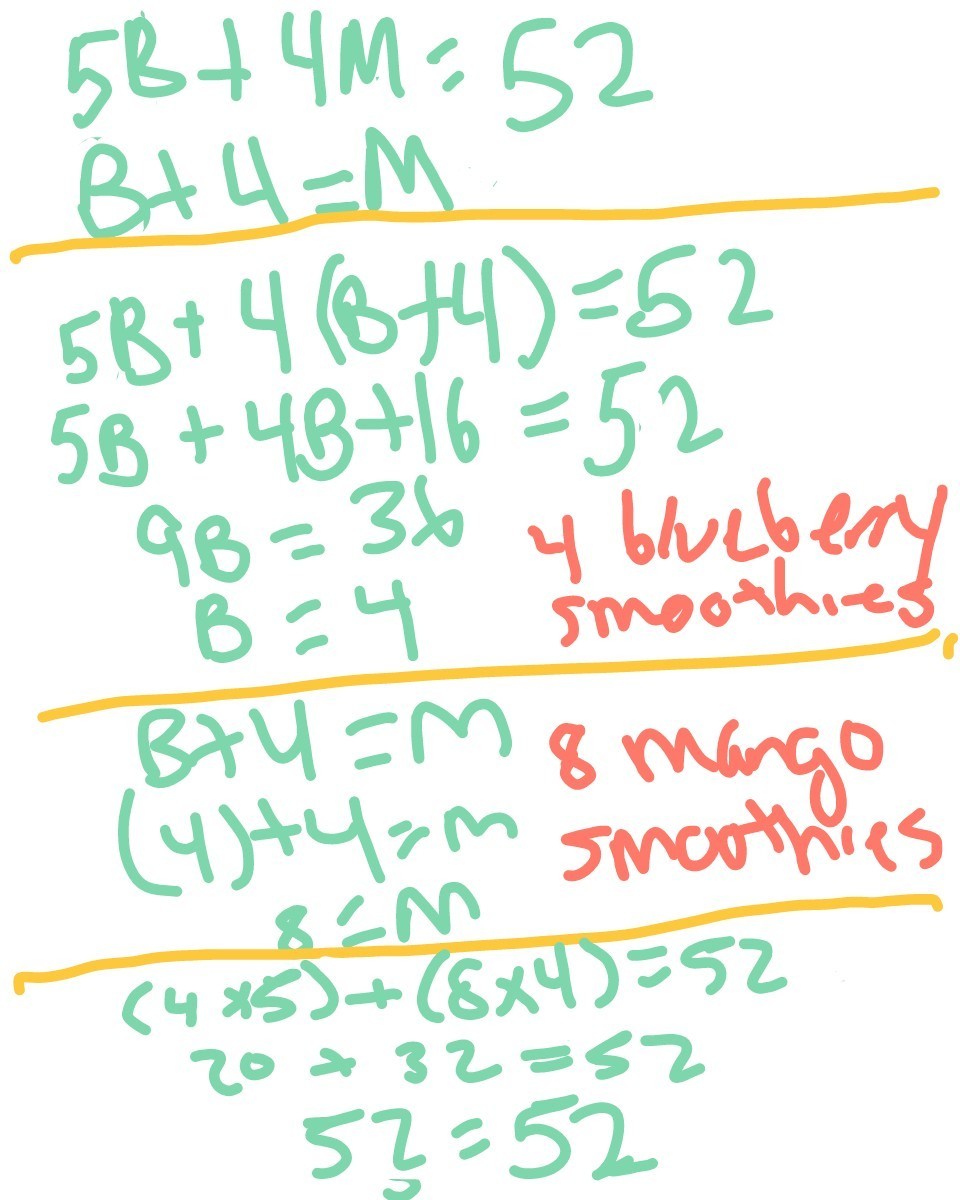 5B+4M=52
B+4=M
5B+4(B+4)=52
5B+4B+16=52
9B=36
B=4
4 blueberry
smoothies
B+4=M
(4)+4=m
8=M
8 mango
smoothies
(4×5)+(8×4)=52
20+32=52
52=52